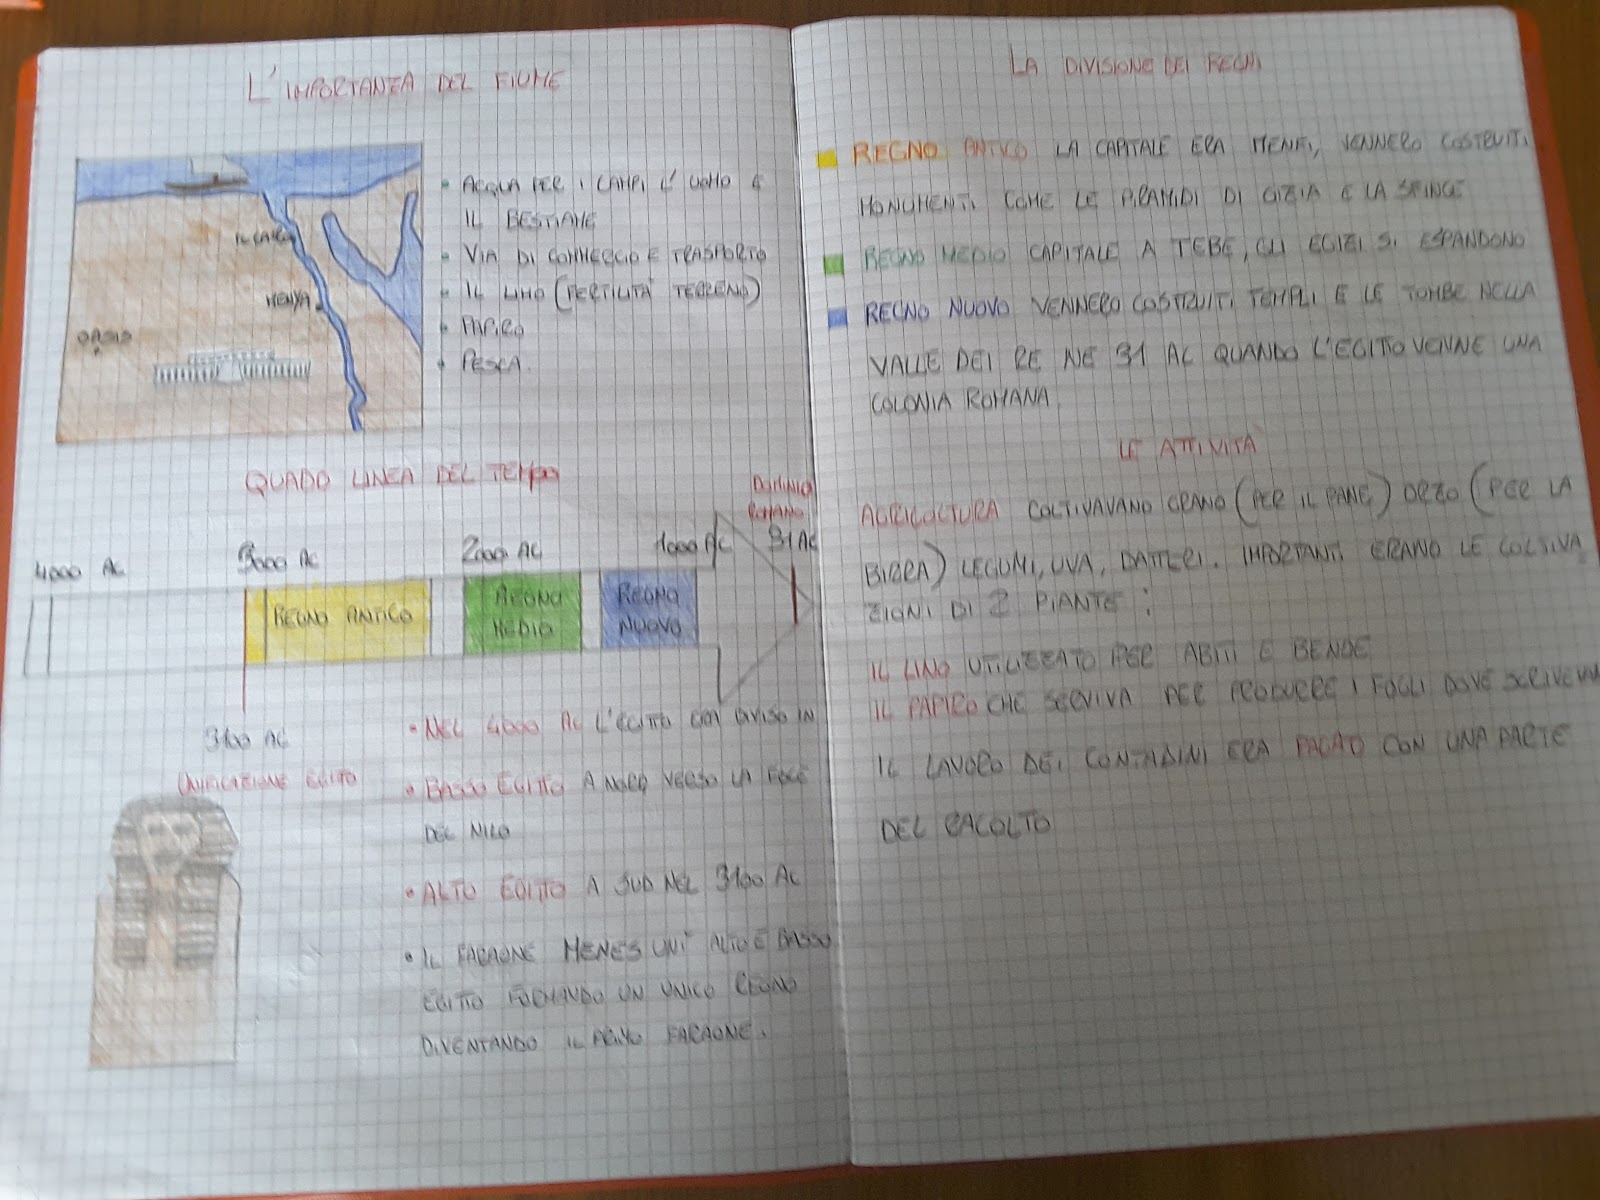 L'IMPORTANZA DEL FIUME
IL CAIRO
OASIS
• ACQUA PER I CAMPI L'UOMO E
IL BESTIAME
• VIA DI COMMERCIO E TRASPORTO
• IL LIMO (FERTILITÀ TERRENO)
• PAPIRO
• PESCA.
QUADO LINEA DEL TEMPO
DOMINIO
ROMANO
4000 AC 3000 AC 2000 AC 1000 AC 31 AC
REGNO ANTICO
REGNO
MEDIO
REGNO
NUOVO
3100 AC
UNIFICAZIONE EGITO
• NEL 4000 AC L'EGITTO ERA DIVISO IN
• BASSO EGITTO A NORD VERSO LA FOCE
DEL NILO
• ALTO EGITTO A SUD NEL 3100 AC
• IL FARAONE MENES UNÌ ALTO E BASSO
EGITTO FORMANDO UN UNICO REGNO
DIVENTANDO IL PRIMO FARAONE.
LA DIVISIONE DEI REGNI
REGNO ANTICO LA CAPITALE ERA MENFI, VENNERO COSTRUITI
MONUMENTI COME LE PIRAMIDI DI GIZIA E LA SFINGE
REGNO MEDIO CAPITALE A TEBE, GLI EGIZI SI ESPANDONO
REGNO NUOVO VENNERO COSTRUITI TEMPLI E LE TOMBE NELLA
VALLE DEI RE NE 31 AC QUANDO L'EGITO VENNE UNA
COLONIA ROMANA.
LE ATTIVITÀ
AGRICOLTURA COLTIVAVANO GRANO (PER IL PANE) ORZO (PER LA
BIRRA) LEGUMI, UVA, DATTERI. IMPORTANTI ERANO LE COLTIVA
ZIONI DI 2 PIANTE:
IL LINO UTILIZZATO PER ABITI E BENDE
IL PAPIRO CHE SERVIVA PER PRODURRE I FOGLI DOVE
IL LAVORO DEI CONTADINI ERA PAGATO CON UNA PARTE
DEL RACOLTO